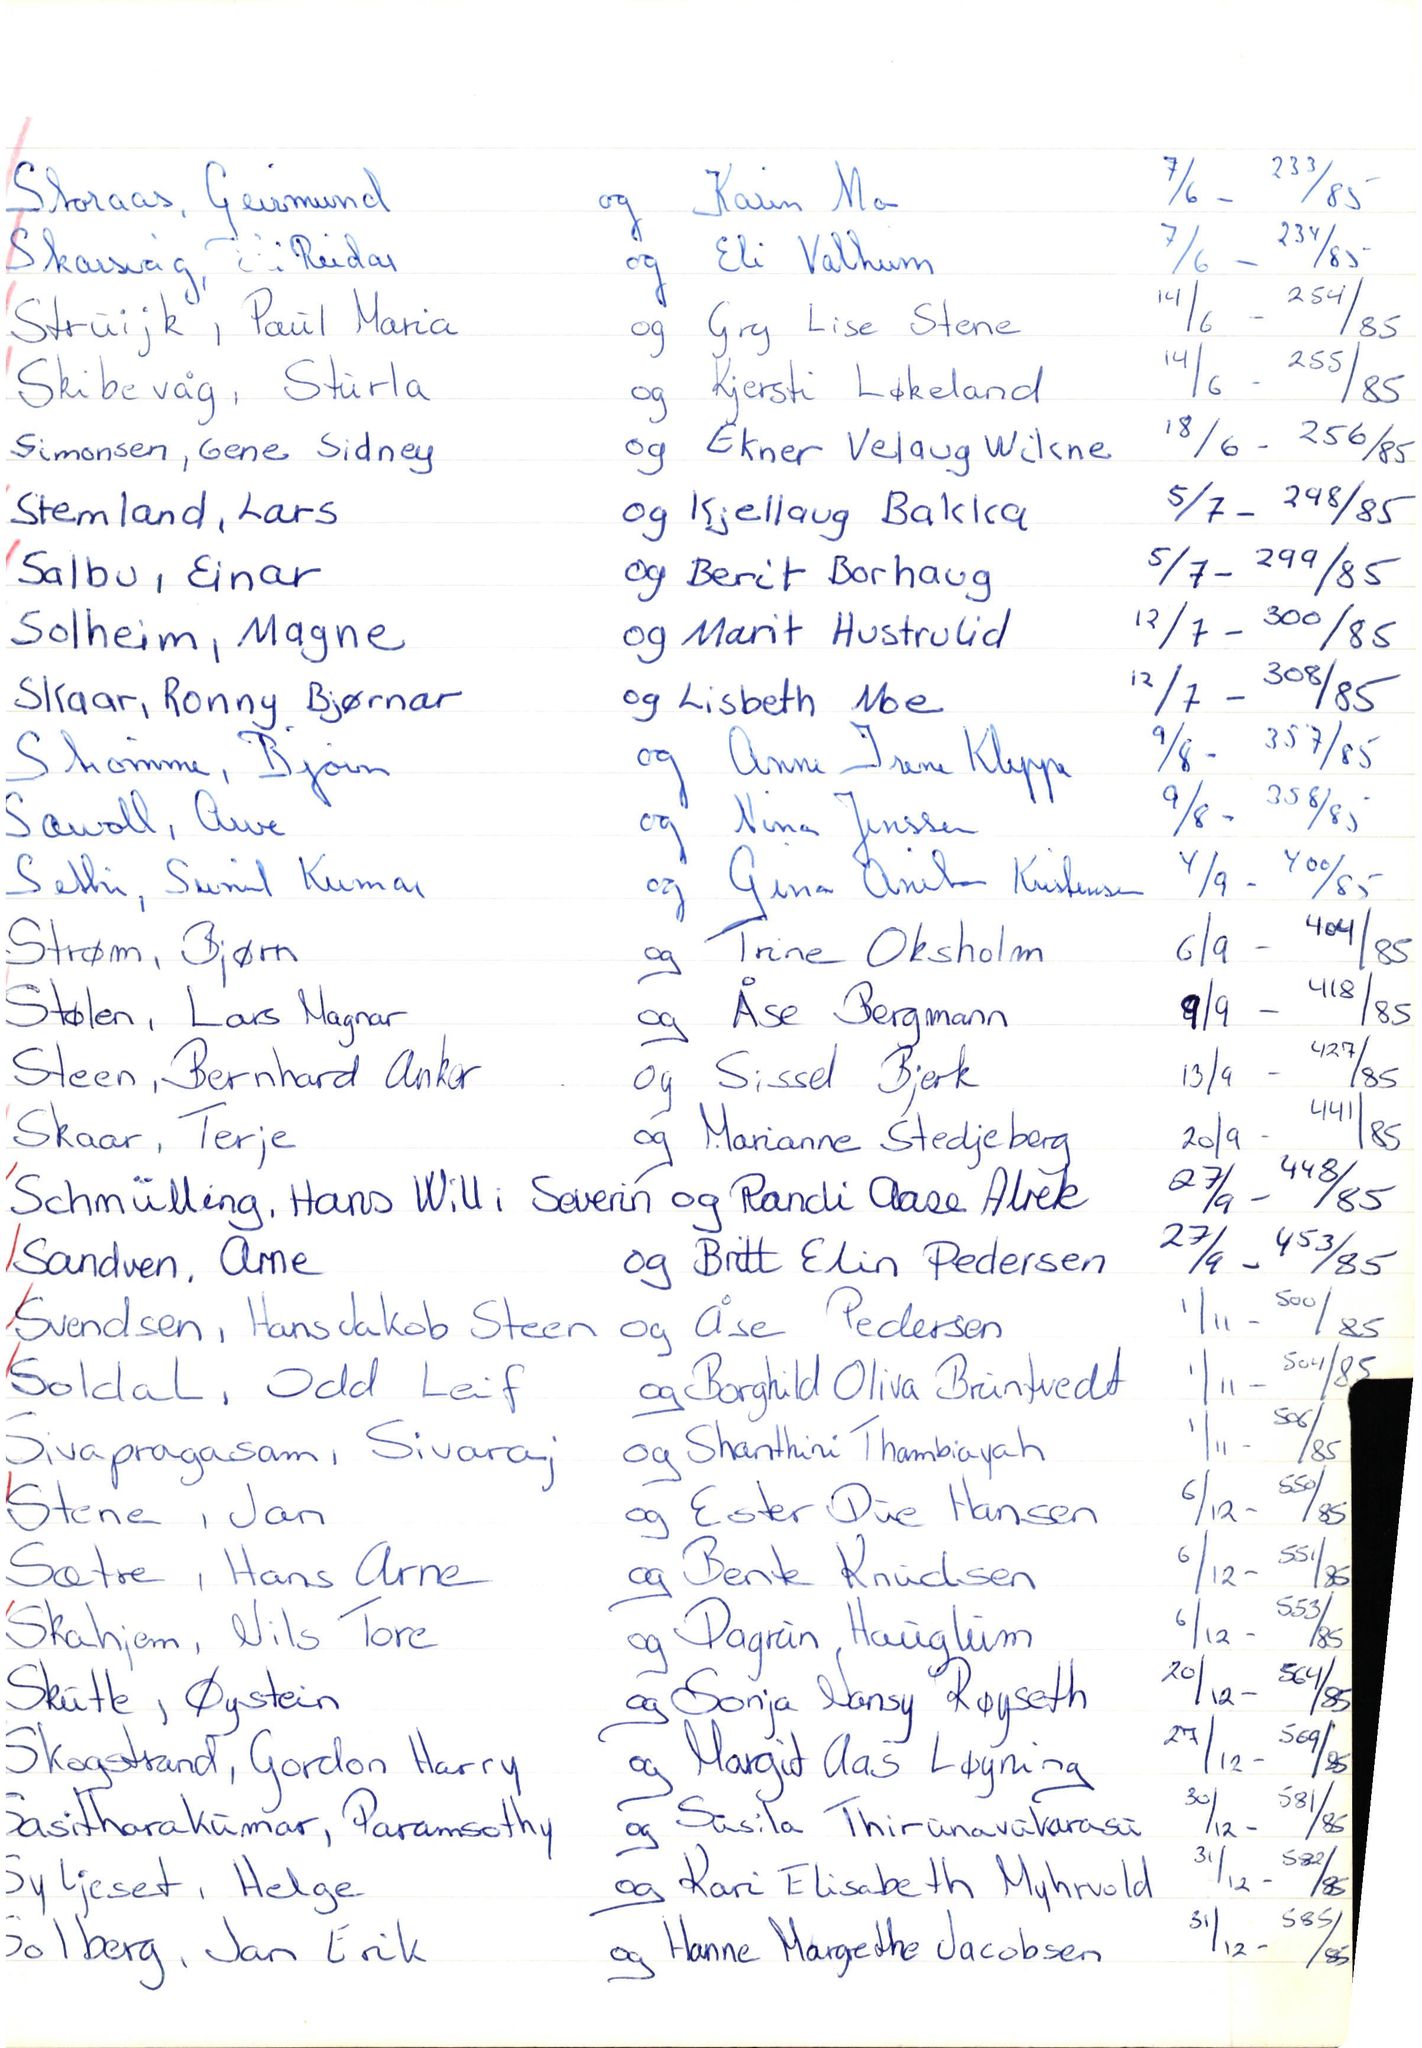 Storaas, Geirmund og Karin Mo 7/6 - 233/85
Skarsvåg, Reidar og Eli Valhum 7/6 - 234/85
Struijk, Paul Maria og Gry Lise Stene 14/6 - 254/85
Skibevåg, Sturla og Kjersti Løkeland 14/6 - 255/85
Simonsen, Gene Sidney og Ekner Velaug Wikne 18/6 - 256/85
Stemland, Lars og Kjellaug Bakka 5/7 - 298/85
Salbu, Einar og Berit Borhaug 5/7 - 299/85
Solheim, Magne og Marit Hustrulid 12/7 - 300/85
Skaar, Ronny Bjørnar og Lisbeth Moe 12/7 - 308/85
Strømme, Bjørn og Anne Irene Kleppe 9/8 - 357/85
Sævoll, Arve og Nina Jenssen 9/8 - 358/85
Sethi, Sunil Kumar og Gina Anita Kristensen 4/9 - 400/85
Strøm, Bjørn og Trine Oksholm 6/9 - 404/85
Stølen, Lars Magnar og Åse Bergmann 9/9 - 418/85
Steen, Bernhard Anker og Sissel Bjerk 13/9 - 427/85
Skaar, Terje og Marianne Stedjeberg 20/9 - 441/85
Schmülling, Hans Willi Severin og Randi Aase Alrek 27/9 - 448/85
Sandven, Arne og Britt Elin Pedersen 27/9 - 453/85
Svendsen, Hans Jakob Steen og Åse Pedersen 1/11 - 500/85
Soldal, Odd Leif og Borghild Oliva Bruntvedt 1/11 - 504/85
Sivapragasam, Sivaraj og Shanthini Thambiayah 1/11 - 506/85
Stene, Jan og Ester Due Hansen 6/12 - 550/85
Sætre, Hans Arne og Bente Knudsen 6/12 - 551/85
Skahjem, Nils Tore og Dagrun Hauglum 6/12 - 553/85
Skutle, Øystein og Sonja Nansy Røyseth 20/12 - 564/85
Skogstrand, Gordon Harry og Margit Aas Løyning 27/12 - 569/85
Sasitharakumar, Paramsothy og Susila Thirunavukarasu 30/12 - 581/85
Syljeset, Helge og Kari Elisabeth Myhrvold 31/12 - 582/85
Solberg, Jan Erik og Hanne Margethe Jacobsen 31/12 - 585/85